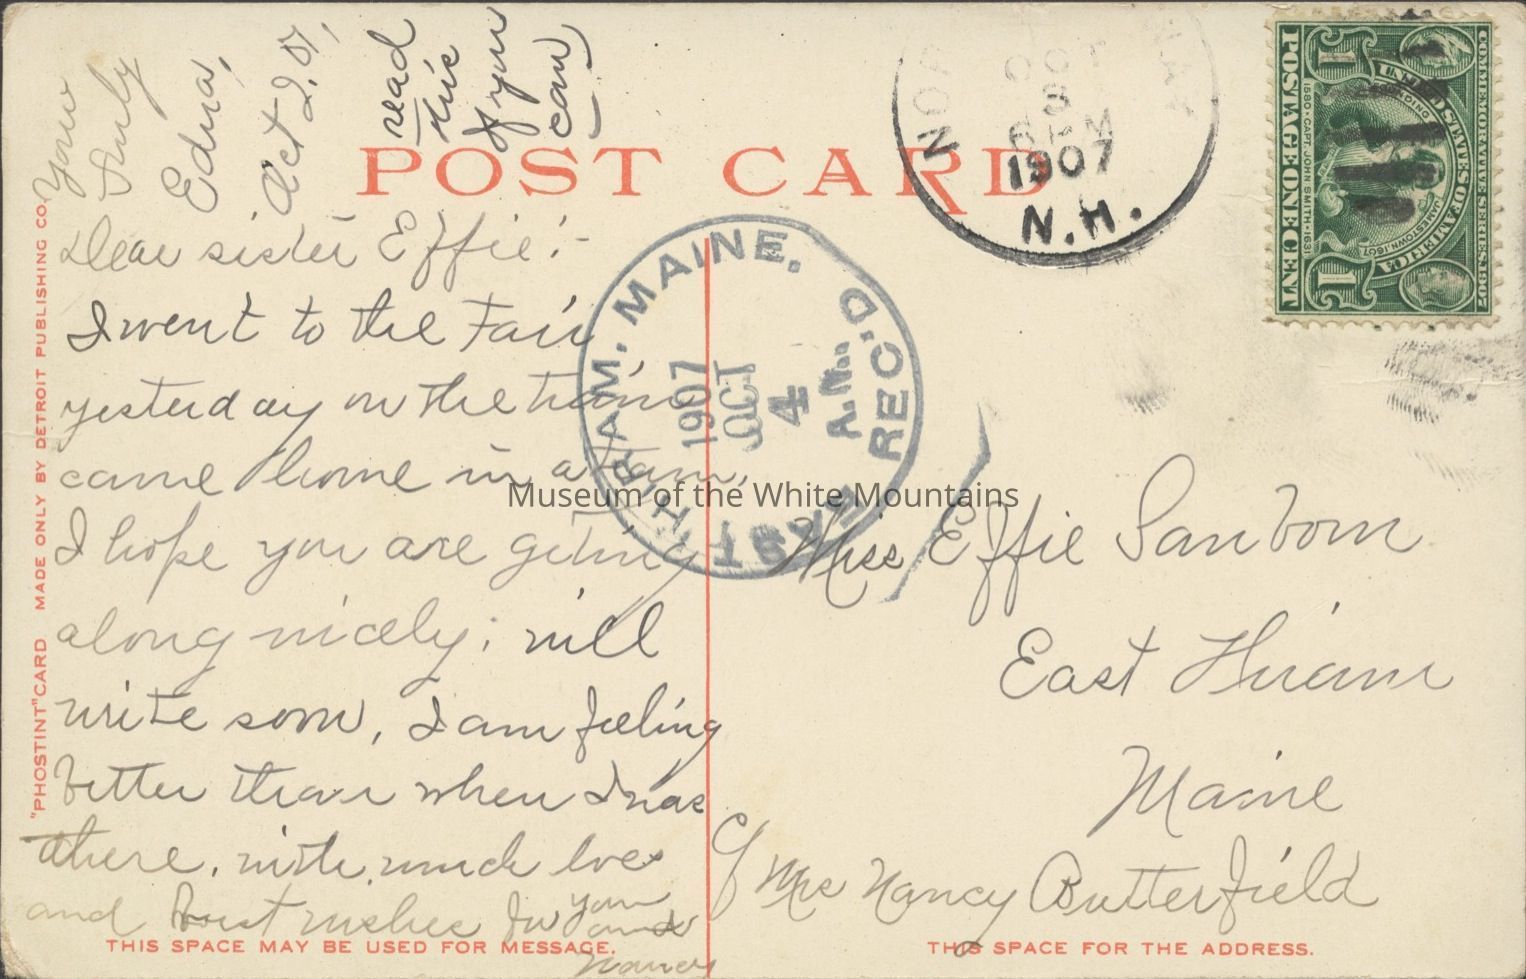 Yours
truly
Edna,
Oct 2. 07,
read
this
if you
can
POST CARD
NORTH CONWAY
OCT
3
6 PM
1907
N.H.
COMMEMORATIVE SERIES 1907
UNITED STATES OF AMERICA
FOUNDING
JAMESTOWN, 1607
1580 • CAPT. JOHN SMITH • 1631
POSTAGE ONE CENT
1
1
EAST HIRAM, MAINE. REC'D.
1907
OCT
4
A.M.
"PHOSTINT" CARD MADE ONLY BY DETROIT PUBLISHING CO.
Dear sister Effie:-
I went to the Fair
yesterday on the train
came home in a team,
I hope you are geting
along nicely; will
write soon, I am feeling
better than when I was
there. with much love
and best wishes for you
and
Nancy
Miss Effie Sanborn
East Hiram
Maine
c/o Mrs Nancy Butterfield
THIS SPACE MAY BE USED FOR MESSAGE.
THIS SPACE FOR THE ADDRESS.
Museum of the White Mountains